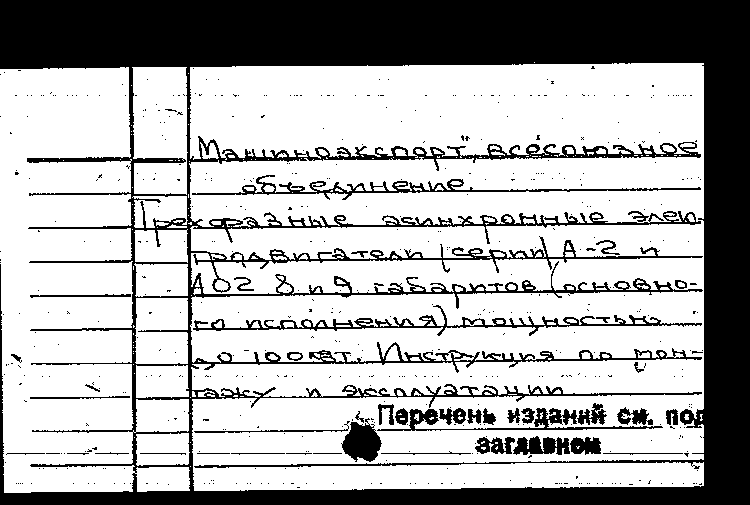 „Машиноэкспорт", всесоюзное
объединение.
Трехфазные асинхронные элек-
тродвигатели (серии) А-2 и
АО2 8 и 9 габаритов (основно-
го исполнения) мощностью
до 100 квт. Инструкция по мон-
тажу и эксплуатации
Перечень изданий см. под
заглавном